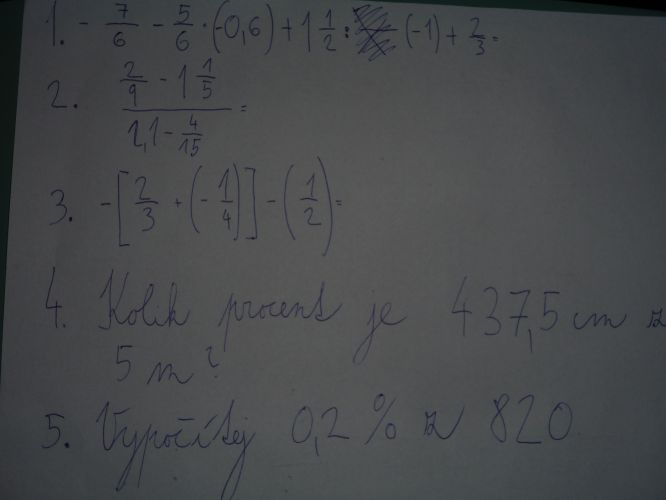 1. - 7/6 - 5/6 · (-0,6) + 1 1/2 : (-1) + 2/3 =
2. (2/9 - 1 1/5) / (1,1 - 4/15) =
3. - [2/3 + (- 1/4)] - (1/2) =
4. Kolik procent je 437,5 cm z
5 m?
5. Vypočítej 0,2 % z 820